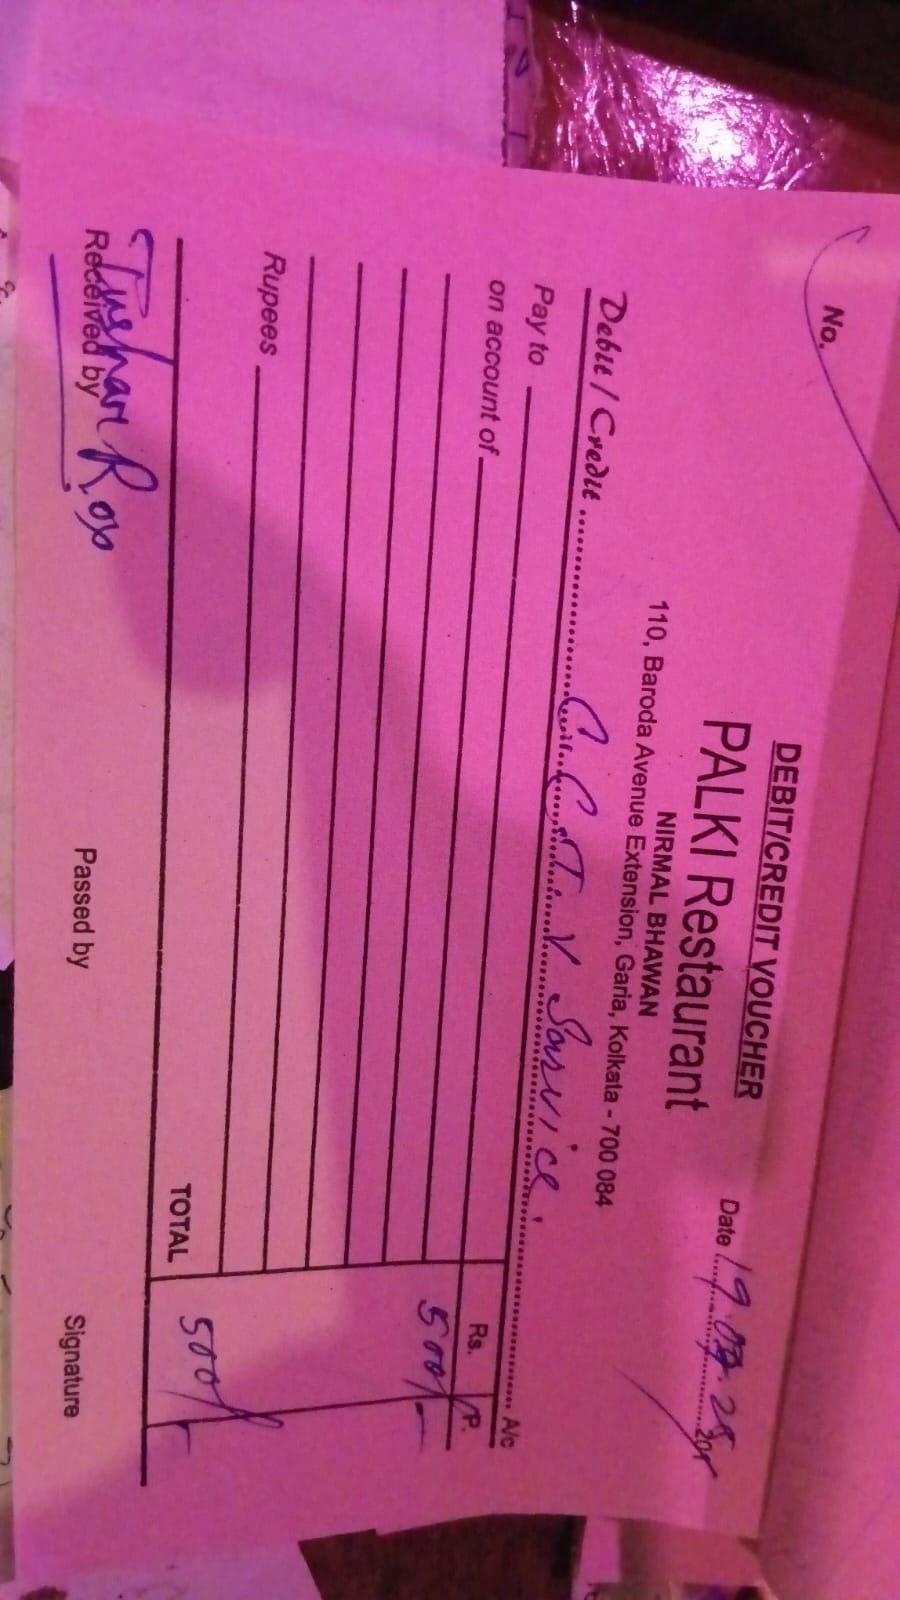 No.
DEBIT/CREDIT VOUCHER
PALKI Restaurant
NIRMAL BHAWAN
110, Baroda Avenue Extension, Garia, Kolkata - 700 084
Date 19. 25
Debit / Credit C.C.T.V Service. A/c
Pay to
on account of
Rs. P.
500/-
Rupees
TOTAL 500/-
Tushar Roy
Received by Passed by Signature